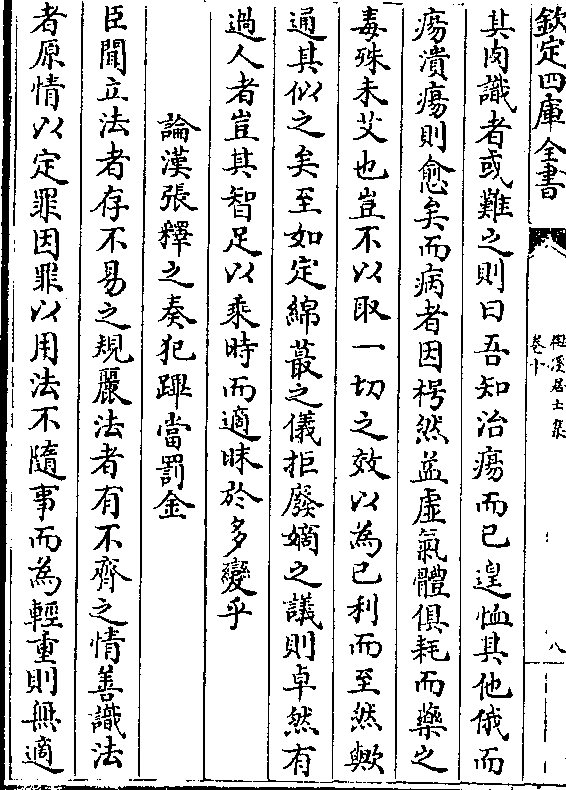 欽定四庫全書
樵溪居士集
卷十
八
其肉識者或難之則曰吾知治瘍而已遑恤其他俄而
瘍潰瘍則愈矣而病者因枵然益虛氣體俱耗而藥之
毒殊未艾也豈不以取一切之效以為己利而至然歟
通其似之矣至如定綿蕞之儀拒廢嫡之議則卓然有
過人者豈其智足以乘時而適昧於多變乎
論漢張釋之奏犯蹕當罰金
臣聞立法者存不易之規麗法者有不齊之情善識法
者原情以定罪因罪以用法不隨事而為輕重則無適